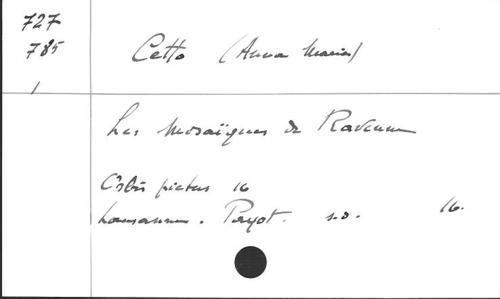 727
785
1
Cetto (Anna Maria)
Les Mosaïques de Ravenne
Orbis pictus 16
Lausanne. Payot. s.d. 16.